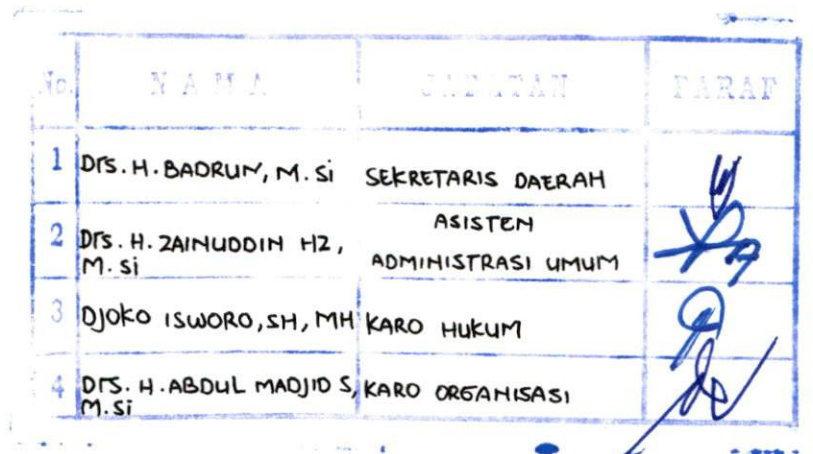 No. NAMA JABATAN PARAF
1 Drs. H. BADRUN, M. Si SEKRETARIS DAERAH
2 Drs. H. ZAINUDDIN HZ, M. Si ASISTEN ADMINISTRASI UMUM
3 DJOKO ISWORO, SH, MH KARO HUKUM
4 Drs. H. ABDUL MADJID S, M. Si KARO ORGANISASI